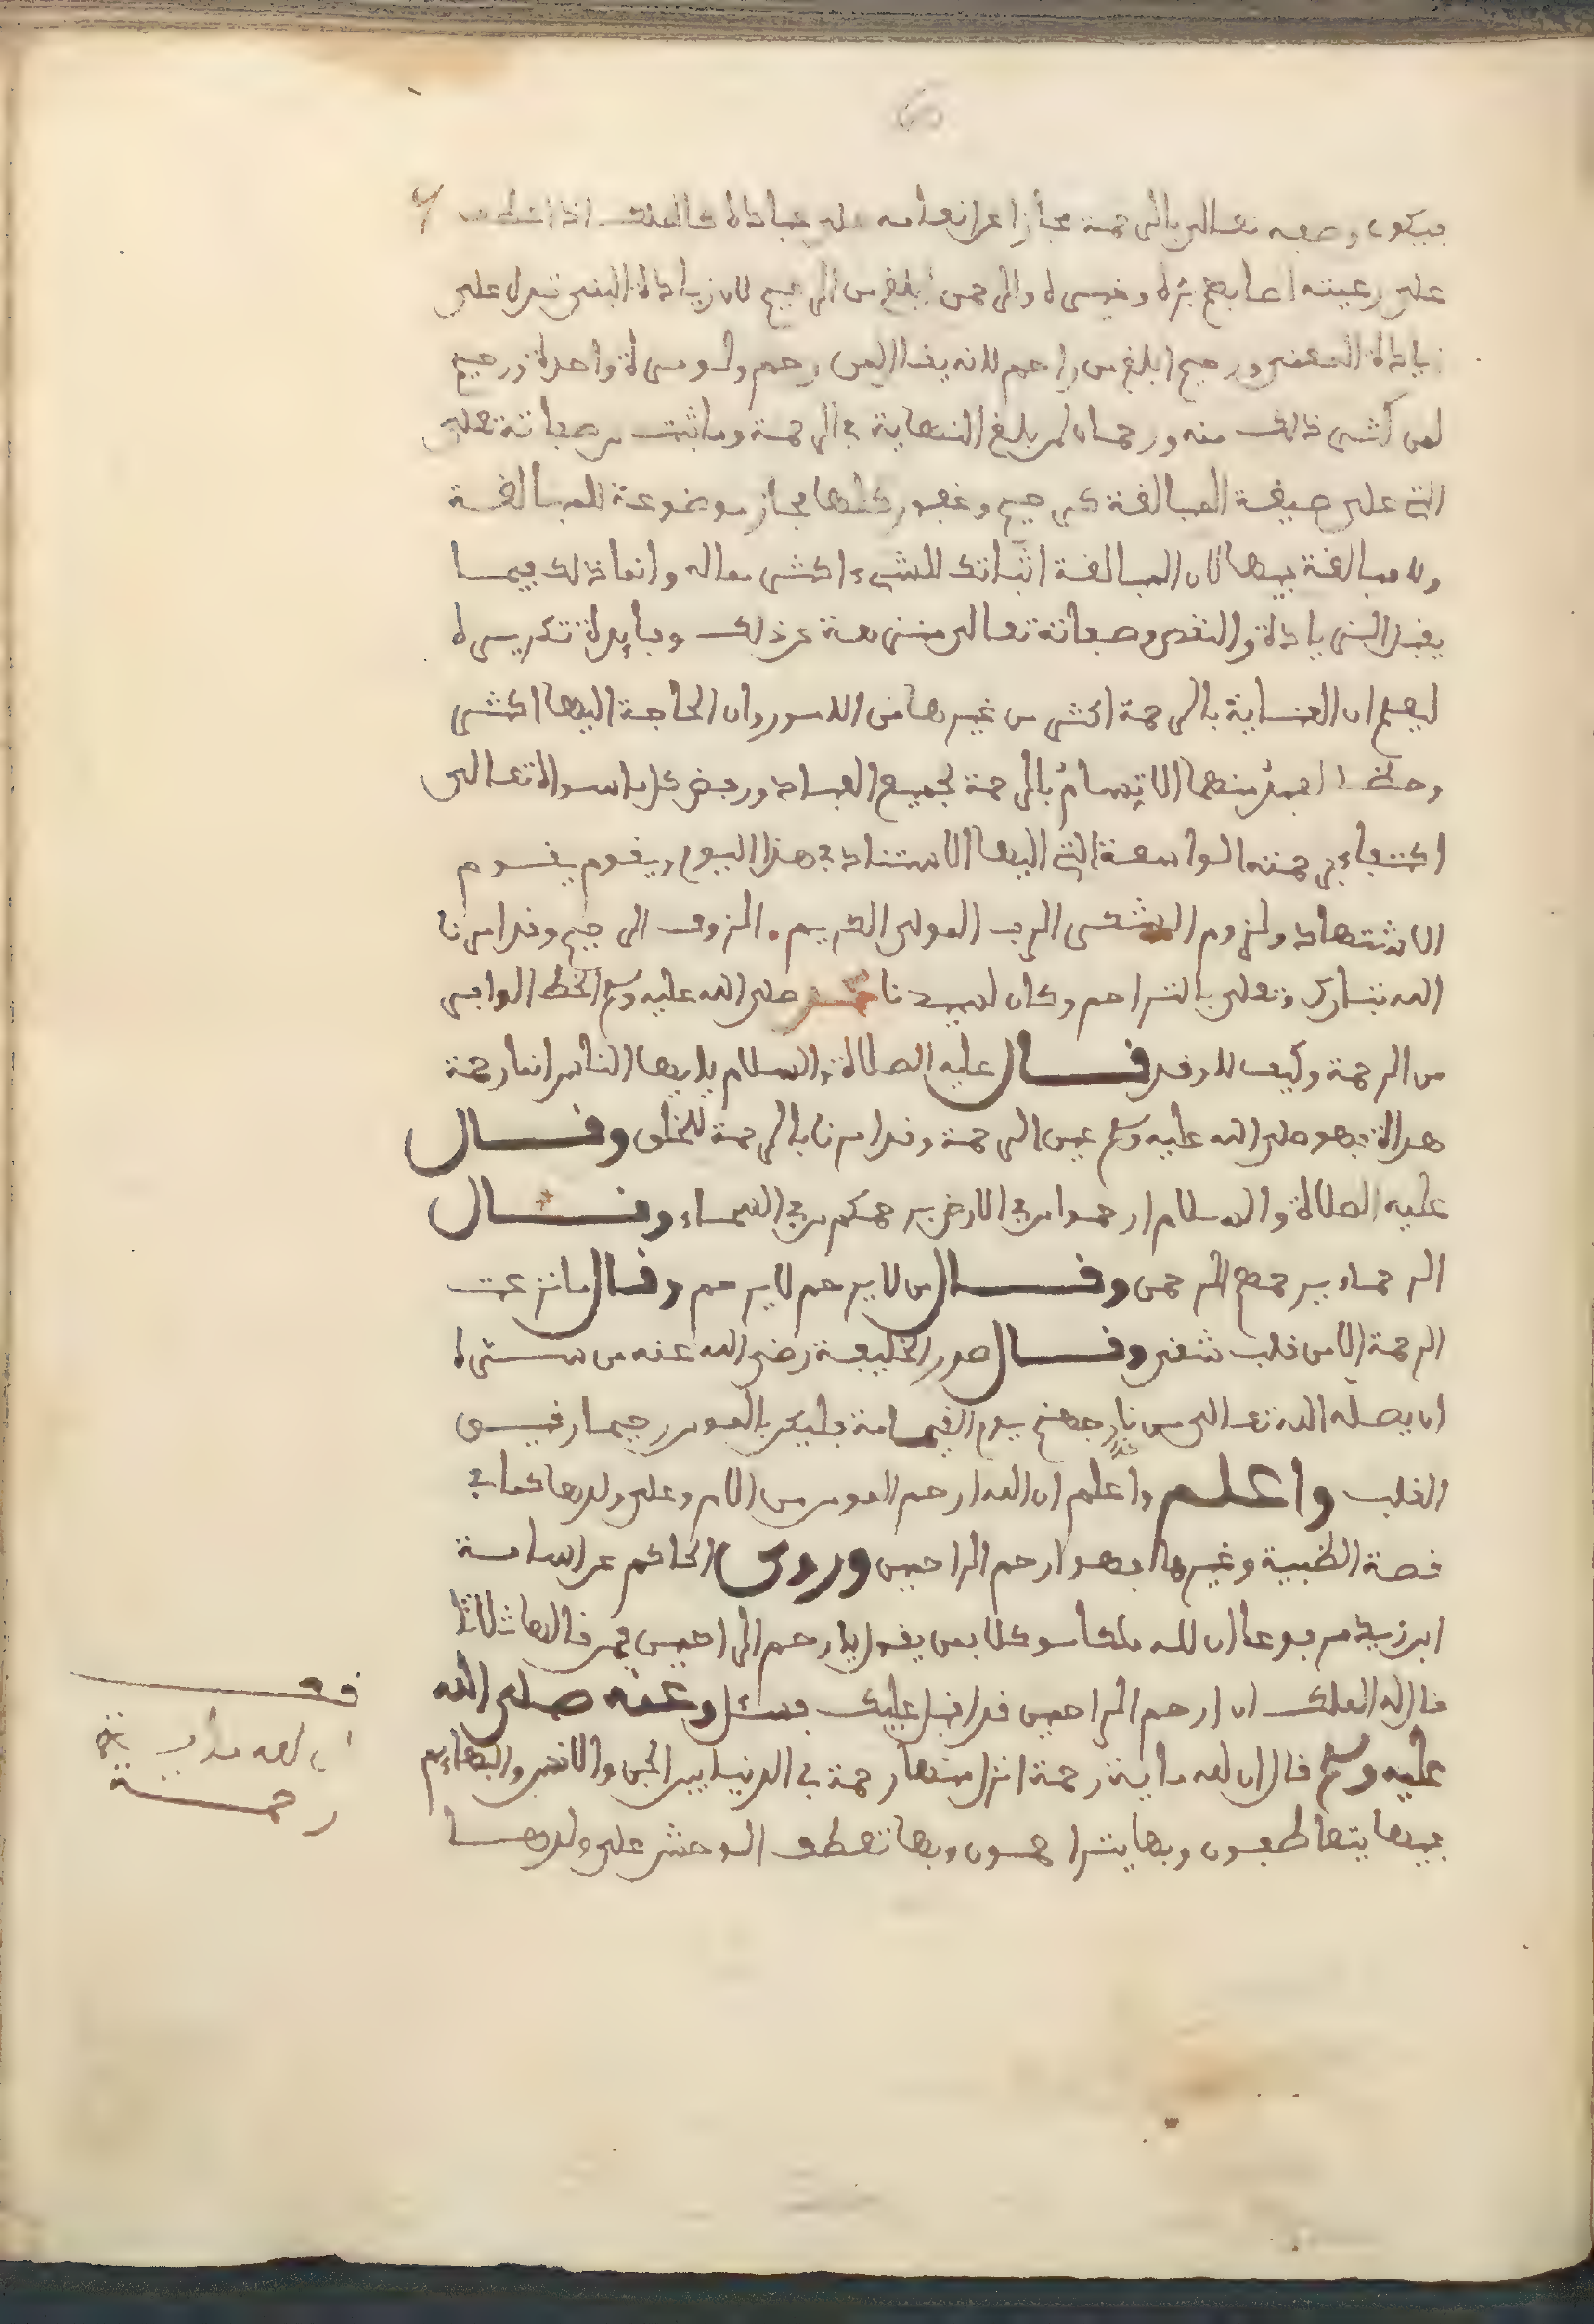 فيكون وصفه تعالى بالرحمة مجازا عن انعامه على عباده كالملك اذا عطف
على رعيته اصابهم بره وخيره والرحمن ابلغ من الرحيم لان زيادة البنى تدل على
زيادة المعنى ورحيم ابلغ من راحم لانه يقال لمن رحم ولو مرة واحدة ورحيم
لمن كثر ذالك منه ورحمان لمن بلغ النهاية في الرحمة وما ثبت من صفاته تعلى
التي على صيغة المبالغة كرحيم وغفور كلها مجاز موضوعة للمبالغة
ولا مبالغة فيها لان المبالغة اثباتك للشيء اكثر مماله وانما ذلك فيما
يقبل الزيادة والنقص وصفاته تعالى منزهة عن ذلك وفايدة تكريره
ليعلم ان العناية بالرحمة اكثر من غيرها من الامور وان الحاجة اليها اكثر
وحظ العبد منهما الاتسام بالرحمة لجميع العباد ورفض كل ما سواه تعالى
اكتفاء برحمته الواسعة التي اليها الاستناد في هذا اليوم ويقوم يقوم
الاشتهاد ولزوم الشكر الرب المولى الكريم. الروف الرحيم وقد امرنا
الله تبارك وتعلى بالتراحم وكان لسيدنا محمد صلى الله عليه وسلم الحظ الوافر
من الرحمة وكيف لا وقد قال عليه الصلاة والسلام يايها الناس انما رحمة
مهداة فهو صلى الله عليه وسلم عين الرحمة وقد امرنا بالرحمة للخلق وقال
عليه الصلاة والسلام ارحموا من في الارض يرحمكم من في السماء وقال
الرحماء يرحمهم الرحمن وقال من لا يرحم لا يرحم وقال ما نزعت
الرحمة الا من قلب شقي وقال صدر الخليفة رضي الله عنه من سره
ان يصله الله تعالى من نار جهنم يوم القيامة فليكن بالمومن رحيما رقيق
القلب واعلم واعلم ان الله ارحم المومن من الام وعلى ولدها كما في
قصة الظبية وغيرها فهو ارحم الراحمين وروى الحاكم عن اسامة
ابن زيد مرفوعا ان لله ملكا موكلا بمن يقول يا ارحم الراحمين فمن قالها ثلاثا
قال له الملك ان ارحم الراحمين قد اقبل عليك فسئل وعنه صلى الله
عليه وسلم قال ان لله ماية رحمة انزل منها رحمة في الدنيا بين الجن والانس والبهايم
فبها يتعاطفون وبها يتراحمون وبها تعطف الوحش على ولدها
قف
ان لله ماية
رحمة